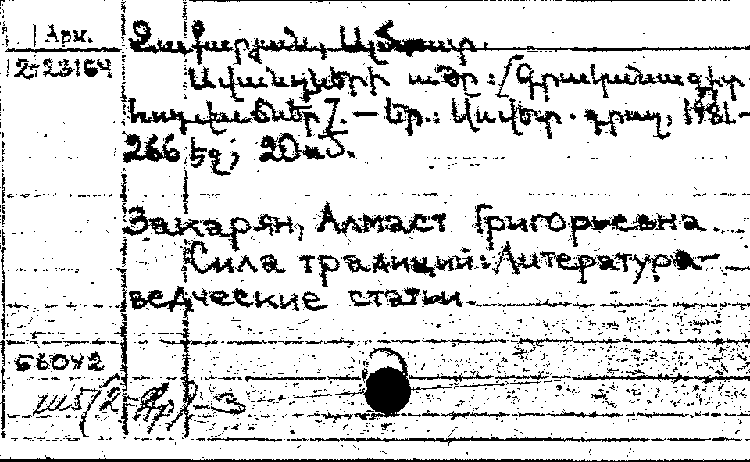 Арм.
Զաքարյան, Ալմաստ.
25-23164
Ավանդների ուժը: [Գրականագիտ.
հոդվածներ]. — Եր.: Սովետ. գրող, 1981.—
266 էջ; 20 սմ.
Закарян, Алмаст Григорьевна.
Сила традиций: Литературо-
ведческие статьи.